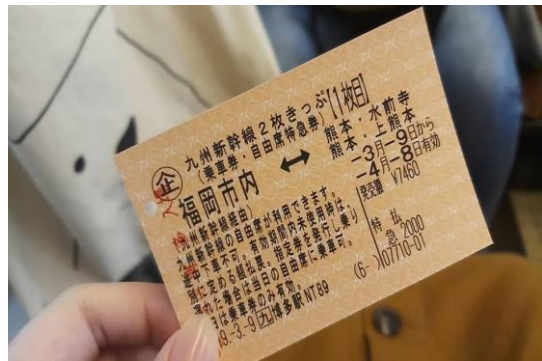 九州新幹線2枚きっぷ【1枚目】
(乗車券・自由席特急券)
企
福岡市内 ↔ 熊本・水前寺
熊本・上熊本
-3月-9日から
-4月-8日有効
発売額 ¥7460
(九州新幹線経由)
九州新幹線の自由席が利用できます。
途中下車不可。有効期間内未使用枠は、
別に定める額払戻。指定券を発行し乗り
遅れた場合は当日の自由席に乗車可。
は乗車券のみ有効。
特払
急2000
-3.-9 九 博多駅NT89
(6-) 07710-01